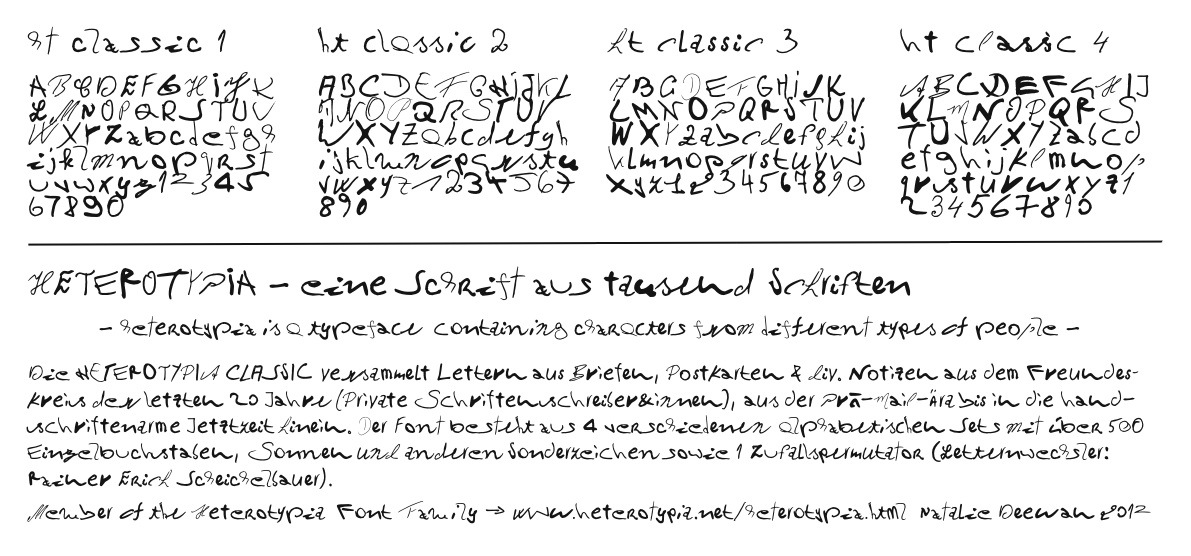 ht classic 1
ABCDEFGHIJK
LMNOPQRSTUV
WXYZabcdefgh
ijklmnopqrst
uvwxyz12345
67890
ht classic 2
ABCDEFGHIJKL
MNOPQRSTUV
WXYZabcdefgh
ijklmnopqrstu
vwxyz1234567
890
ht classic 3
ABCDEFGHIJK
LMNOPQRSTUV
WXYZabcdefghij
klmnopqrstuvw
xyz1234567890
ht classic 4
ABCDEFGHIJ
KLMNOPQRS
TUVWXYZabcd
efghijklmnop
qrstuvwxyz1
234567890
HETEROTYPIA – eine Schrift aus tausend Schriften
– heterotypia is a typeface containing characters from different types of people –
Die HETEROTYPIA CLASSIC versammelt Lettern aus Briefen, Postkarten & div. Notizen aus dem Freundes-
kreis der letzten 20 Jahre (Private Schriftenschreiber&innen), aus der Prä-Mail-Ära bis in die hand-
schriftenarme Jetztzeit hinein. Der Font besteht aus 4 verschiedenen alphabetischen Sets mit über 500
Einzelbuchstaben, Sonnen und anderen Sonderzeichen sowie 1 Zufallspermutator (Letternwechsler:
Rainer Erich Scheichelbauer).
Member of the Heterotypia Font Family → www.heterotypia.net/heterotypia.html Natalie Deewan 2012